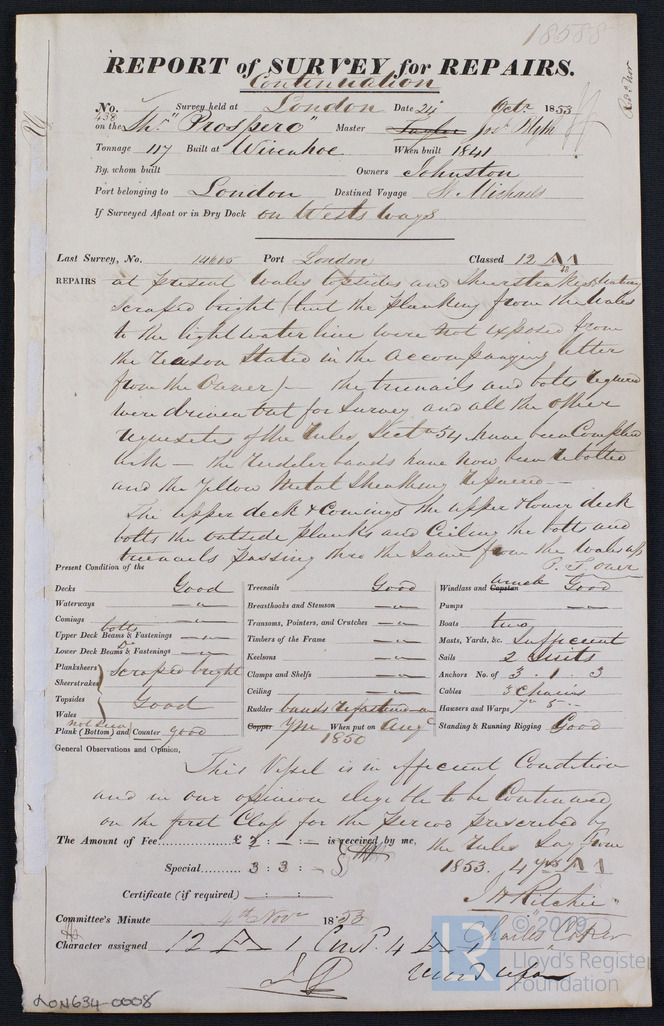 18588
REPORT of SURVEY for REPAIRS.
Continuation
No. 438 Survey held at London Date 24 Octr 1853
on the Shr "Prospero" Master Taylor Jno Blyth
Tonnage 117 Built at Wivenhoe When built 1841
By whom built Owners Johnston
Port belonging to London Destined Voyage St. Michaels
If Surveyed Afloat or in Dry Dock on Wests ways
Last Survey, No. 14665 Port London Classed 12 A1
REPAIRS at present Wales topsides and Sheerstrakes
scraped bright (but the planking from the wales
to the light water line were not exposed from
the reason Stated in the accompanying letter
from the Owner) — the treenails and bolts required
were driven out for Survey and all the other
requisites of the Rules Sectn 54 have been Complied
with — the Rudder bands have now been rebolted
and the Yellow Metal Sheathing repaired —
The upper deck & Comings the upper & lower deck
bolts the outside planks and Ceiling the bolts and
treenails passing thro the Same from the Wales up
P. T. over
Present Condition of the
Decks Good
Waterways — " —
Comings — " —
Upper Deck Beams & Fastenings bolts — " —
Lower Deck Beams & Fastenings Do — " —
Plansheers
Sheerstrakes scraped bright
Topsides
Wales Good
Plank (Bottom) and Counter not seen good
Treenails Good
Breasthooks and Stemson — " —
Transoms, Pointers, and Crutches — " —
Timbers of the Frame — " —
Keelsons — " —
Clamps and Shelfs — " —
Ceiling — " —
Rudder bands refastened
Copper YM When put on Augt 1850
Windlass and Capstan winch Good
Pumps — " —
Boats two
Masts, Yards, &c. Sufficient
Sails 2 Suits
Anchors No. of 3 . 1 . 3
Cables 3 Chains
Hawsers and Warps
Standing & Running Rigging Good
General Observations and Opinion,
This Vessel is in efficient Condition
and in our opinion eligible to be Continued
on the first Class for the Period prescribed by
The Amount of Fee £ 2 : - : - is received by me, the Rules Say from
Special 3 : 3 : - 1853. 4 yrs A1
Certificate (if required) : :
J H Ritchie
Committee's Minute 4th Novr 1853
Charles
Character assigned 12 A 1 Cont. 4 A 1
LON634-0008
© 2019
LR
Lloyd's Register
Foundation